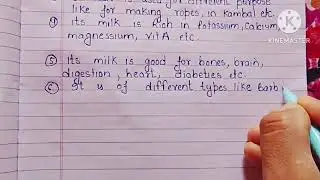 is used for different purpose
like for making ropes, in kambal etc.
④ Its milk is Rich in Potassium, calcium,
magnessium, vit A etc.
⑤ Its milk is good for bones, brain,
digestion, heart, diabeties etc.
⑥ It is of different types like Barb
KINEMASTER